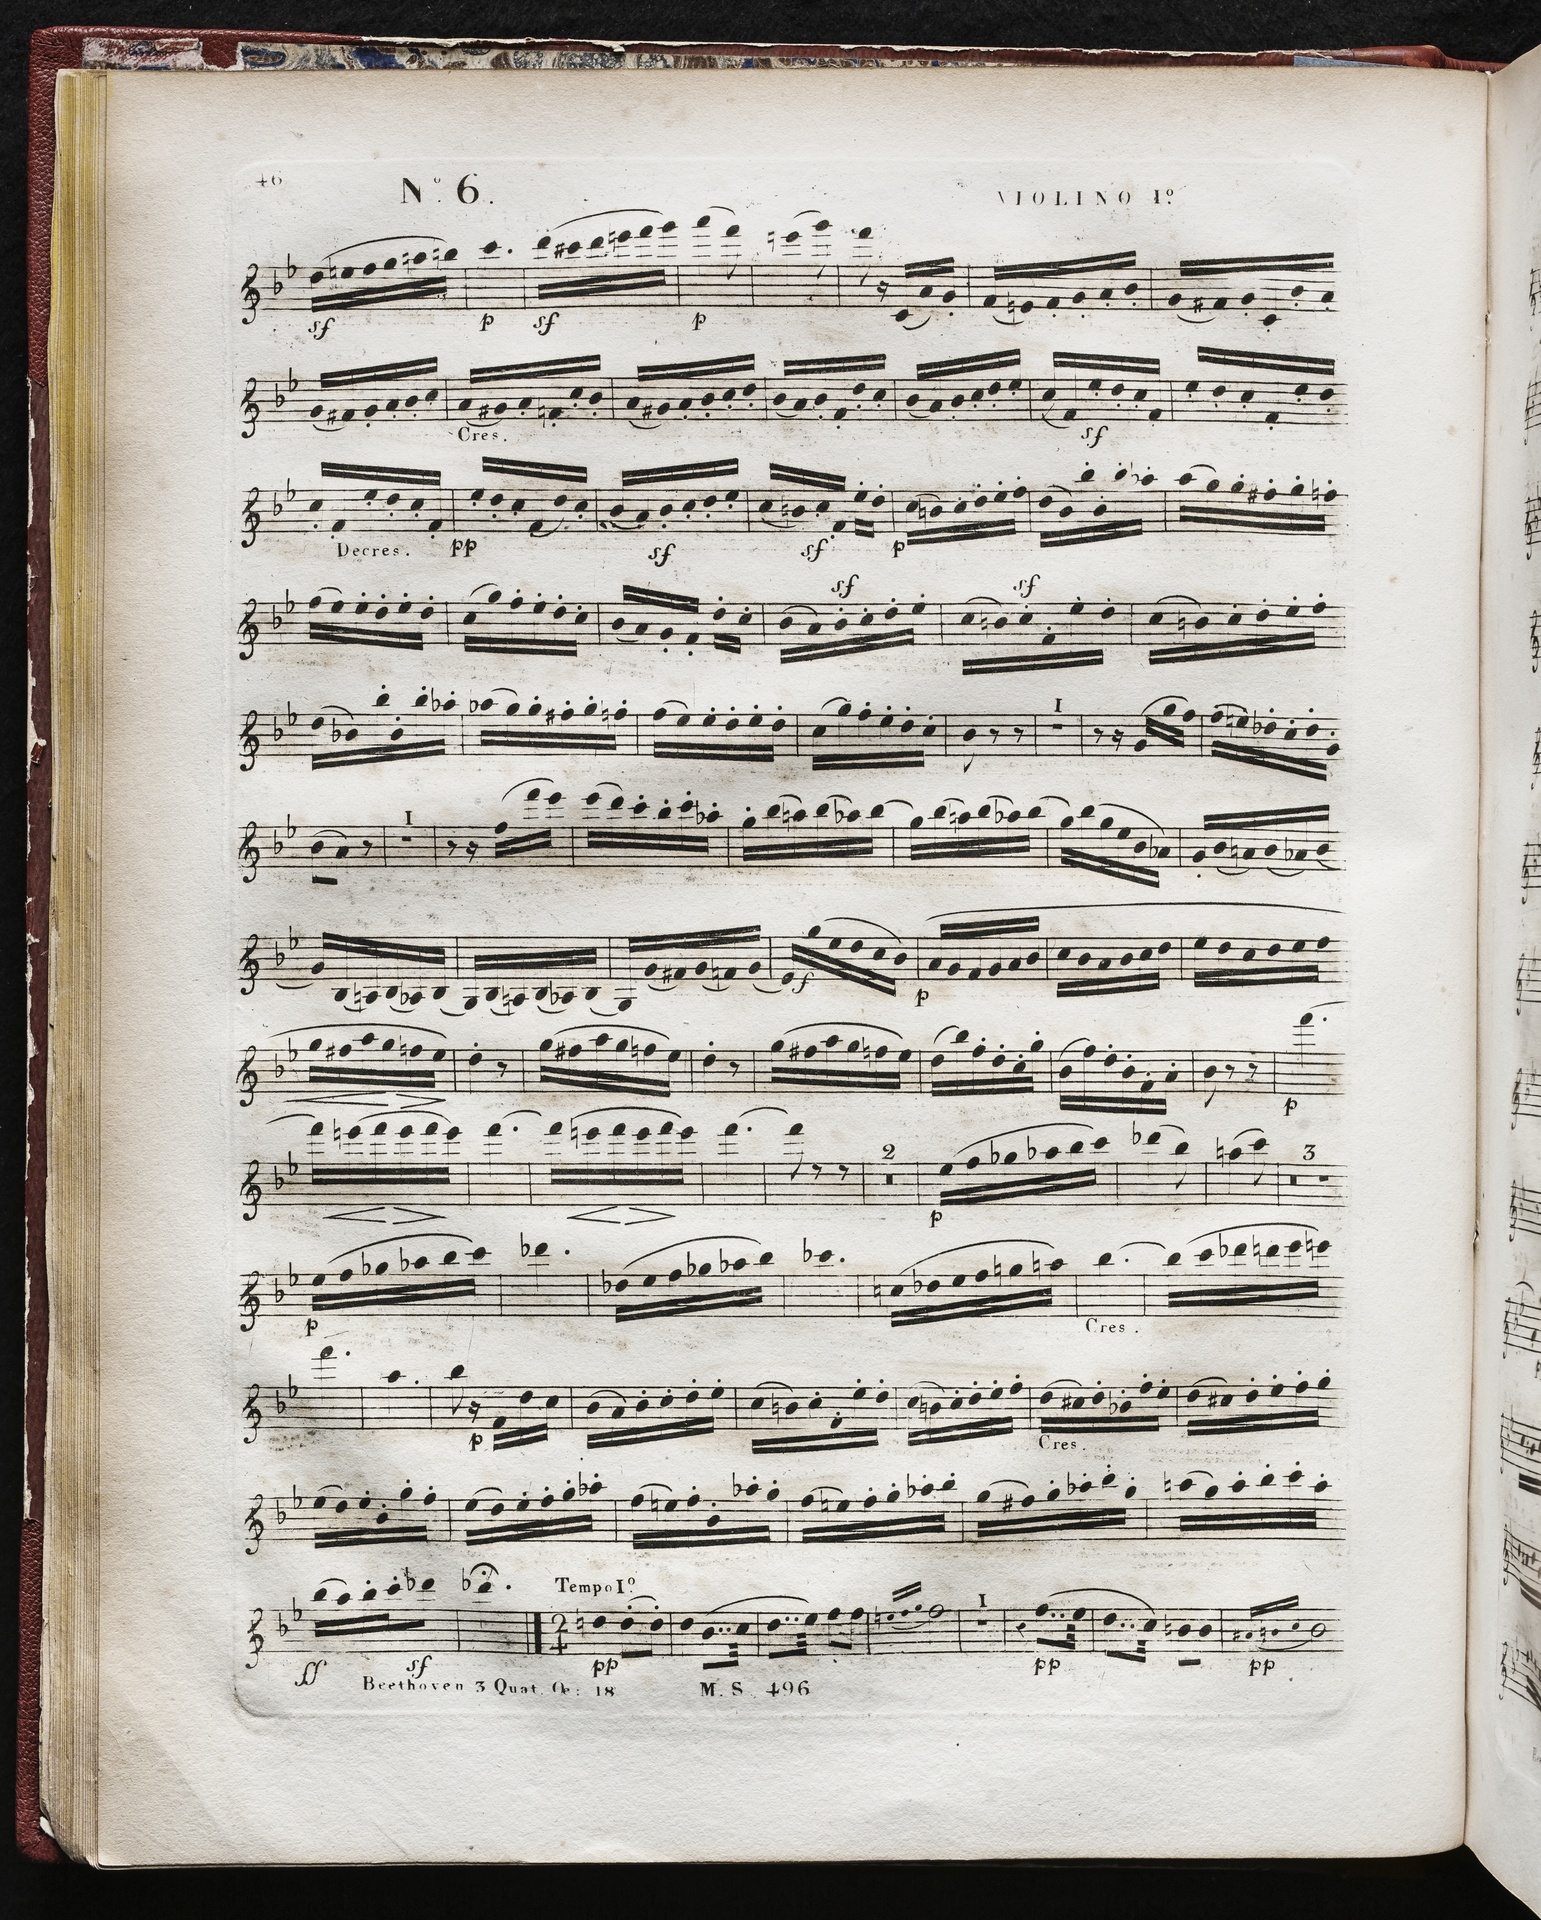 46 Nº. 6. VIOLINO Iº.
sf p sf p
Cres. sf
Decres. pp sf sf p
sf sf
I
I
sf p
p
2 3
p
p Cres.
p Cres.
Tempo Iº.
2 4 I
ff sf pp pp pp
Beethoven 3 Quat. Op: 18 M. S. 496